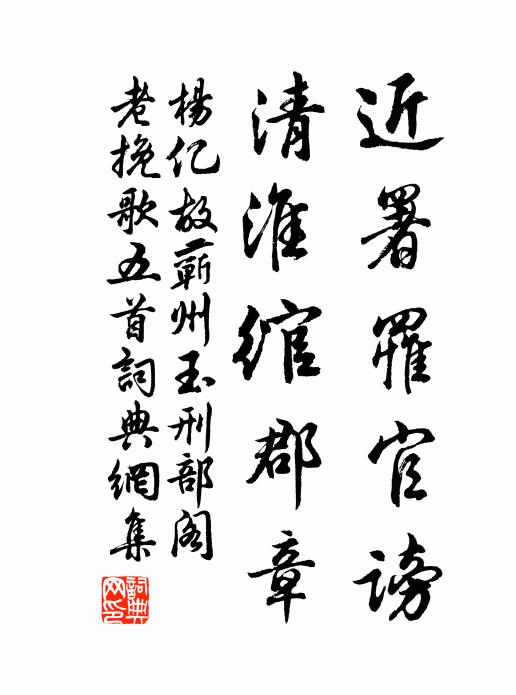 近署罹官謗
清淮綰郡章
楊亿故蘄州玉刑部阁
老挽歌五首詞典網集
詞典
网印